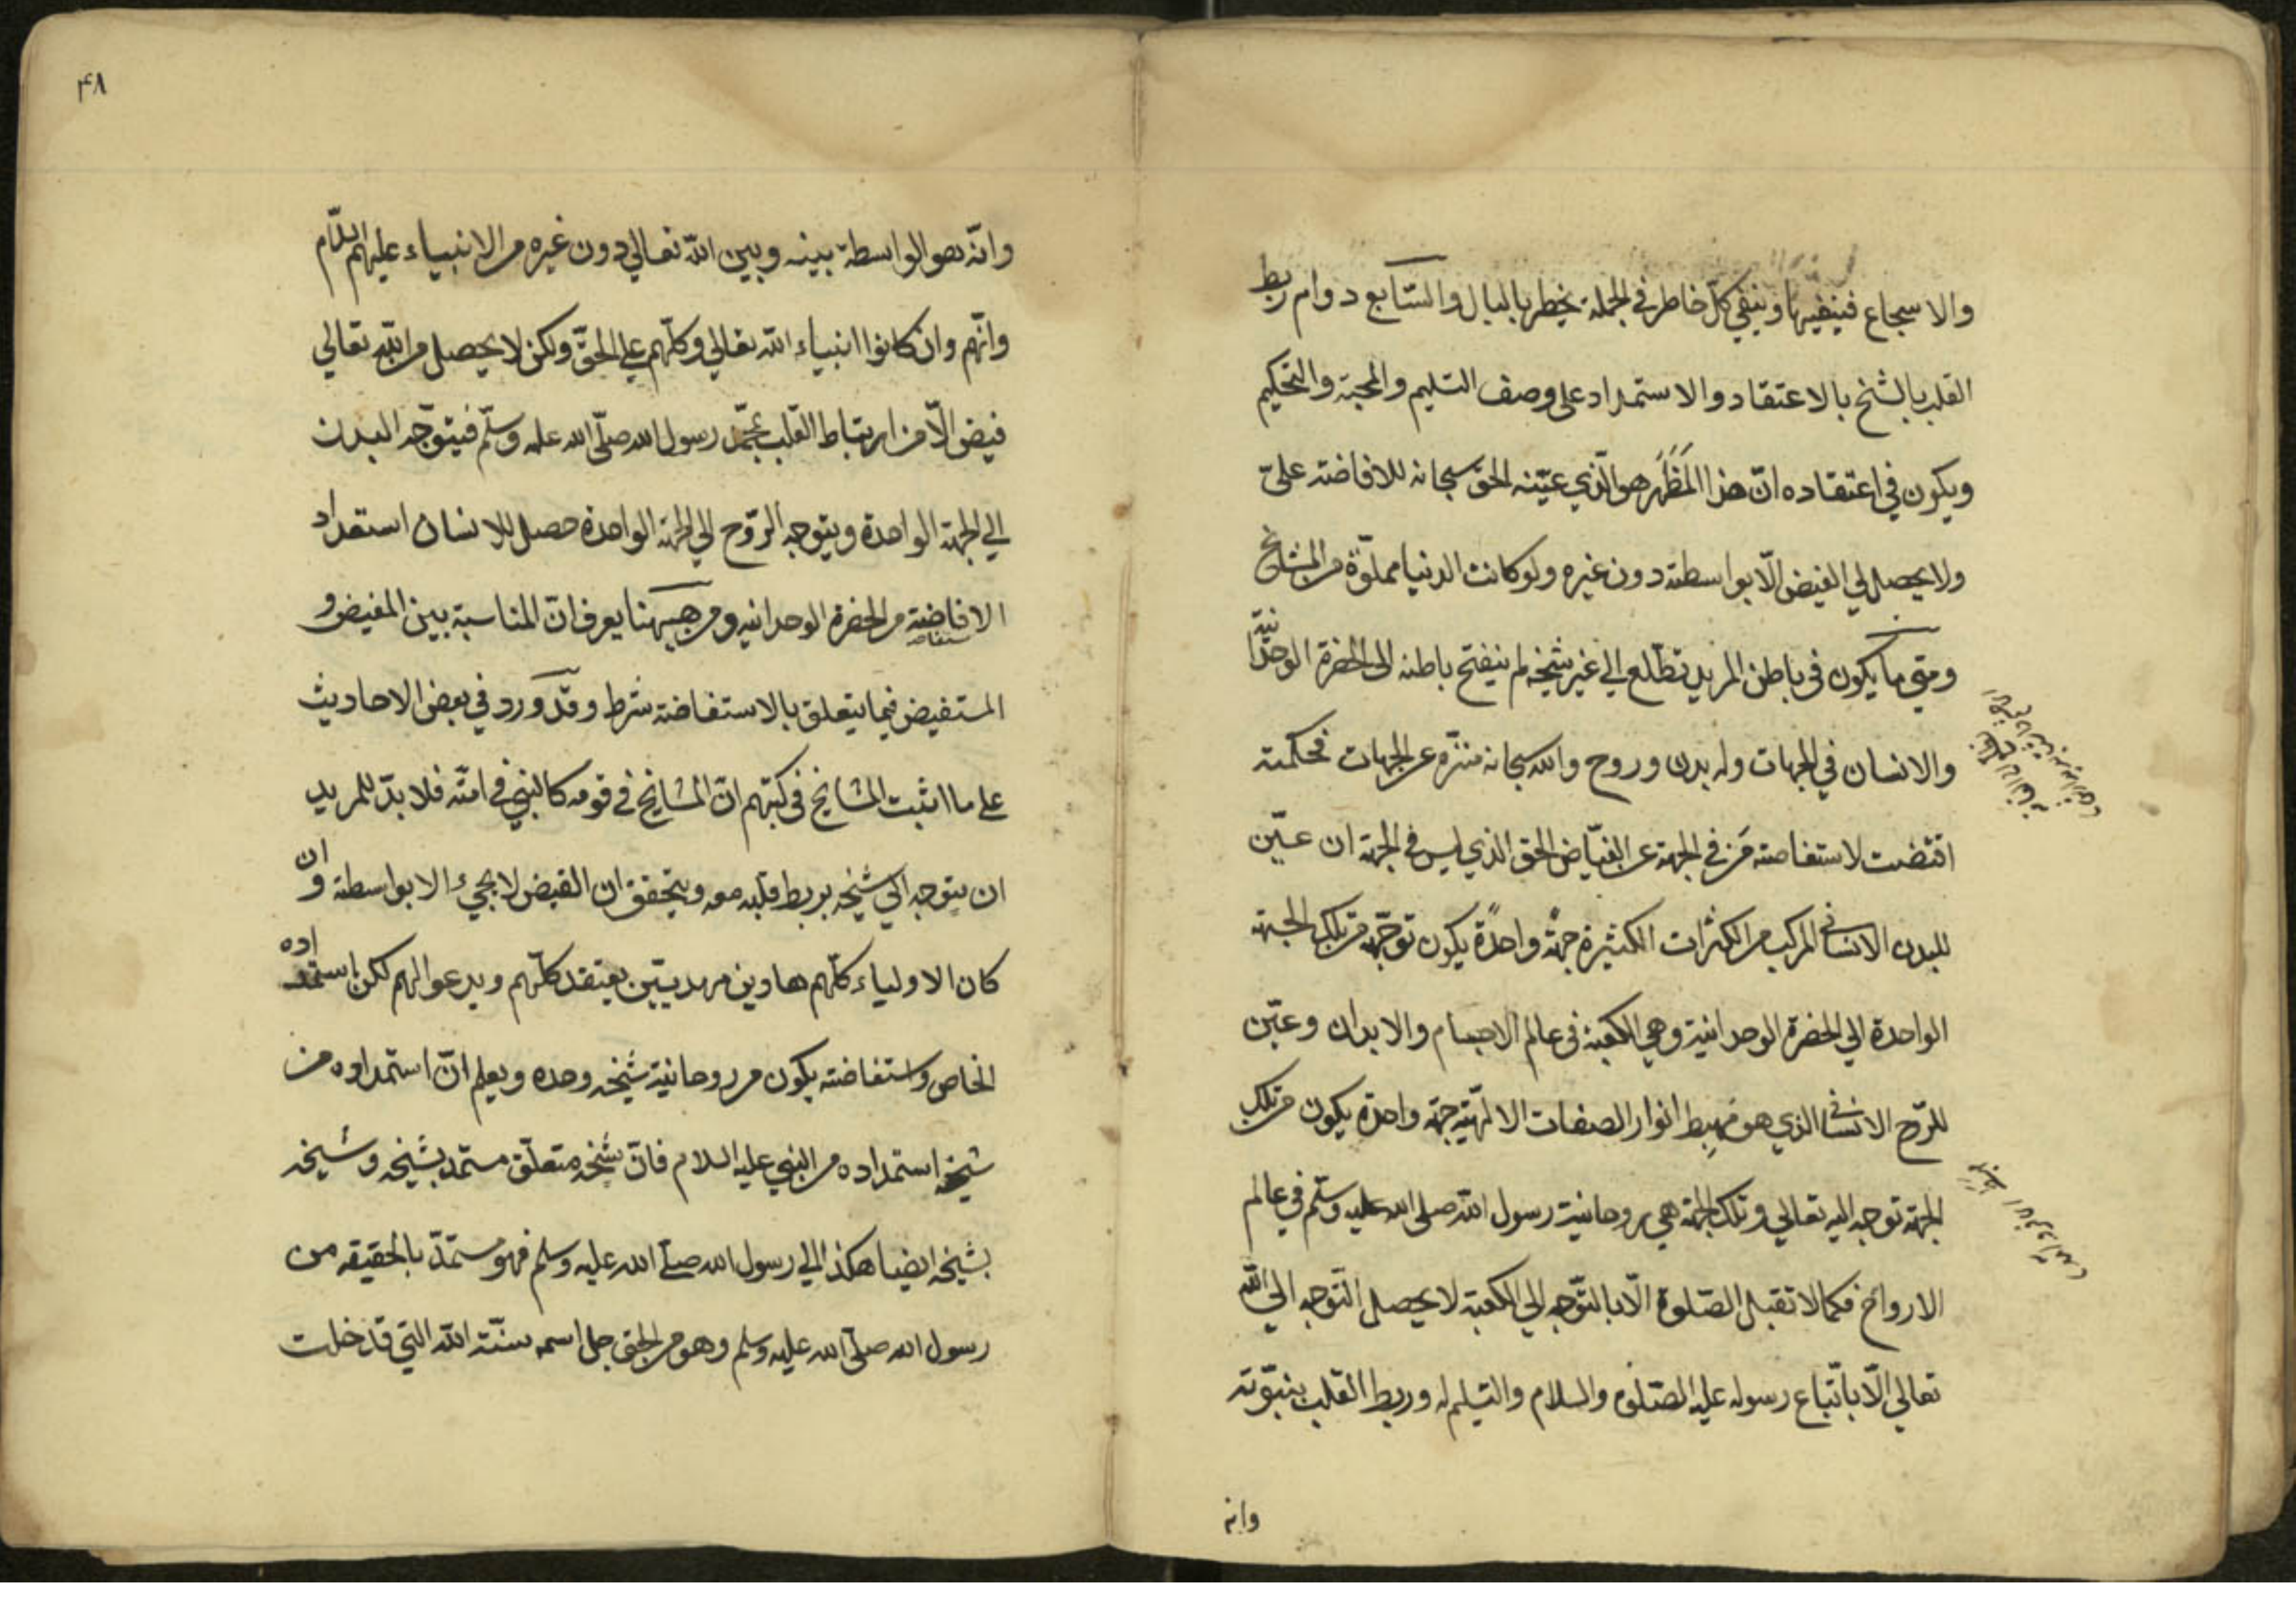 والاسجاع فينفيها وينفي كل خاطر في الجملة يخطر بالبال والسّابع دوام ربط
القلب بالشخ بالاعتقاد والاستمداد على وصف التسليم والمحبة والتحكيم
ويكون في اعتقاده انّ هذا المَظْهَر هو الّذي عيّنه الحق سبحانه للافاضة عليّ
ولا يحصل لي الفيض الّا بواسطته دون غيره ولو كانت الدنيا مملوّة من المشايخ
ومتي ما يكون في باطن المريد تطلّع الي غير شيخه لم ينفتح باطنه الى الحضرة الوحدانية
والانسان في الجهات وله بدن وروح والله سبحانه منزّه عن الجهات فحكمته
اقتضت لاستفاضة مَن في الجهة عن الفيّاض الحق الذي ليس في الجهة ان عيّن
للبدن الانساني المركب من الكثرات الكثيرة جهةً واحدةً يكون توجّهه من تلك الجهة
الواحدة الي الحضرة الوحدانية وهي الكعبة في عالم الاجسام والابدان وعيّن
للرّوح الانساني الذي هو مهبِط انوار الصفات الالهيّة جهة واحدة يكون من تلك
الجهة توجهه اليه تعالي وتلك الجهة هي روحانية رسول الله صلى الله عليه وسلّم في عالم
الارواح فكما لا تقبل الصّلوة الّا بالتّوجه الي الكعبة لا يحصل التّوجه الي الله
تعالي الّا باتّباع رسوله عليه الصّلوة والسلام والتسليم له وربط القلب بنبوّته
وانه
۴۸
وانّه هو الواسطة بينه وبين الله تعالي دون غيره من الانبياء عليهم السلام
وانّهم وان كانوا انبياء الله تعالي وكلّهم علي الحقّ ولكن لا يحصل من الله تعالي
فيض الّا من ارتباط القلب بمحمّد رسول الله صلّى الله عليه وسلّم فيتوجّه البدن
الي الجهة الواحدة ويتوجه الرّوح الي الجهة الواحدة حصل للانسان استعداد
الافاضة من الحضرة الوحدانيه ومن ههنا يعرف انّ المناسبة بين المفيض و
المستفيض فيما يتعلق بالاستفاضة شرط وقد ورد في بعض الاحاديث
علي ما اثبت المشايخ في كتبهم انّ المشايخ في قومه كالنبي في امّته فلا بدّ للمريد
ان يتوجه الي شيخه بربط قلبه معه ويتحقق ان الفيض لا يجيء الا بواسطته وان
كان الاولياء كلّهم هادين مهديّين يعتقد كلّهم ويدعو الهم لكن استمداده
الخاص واستفاضته يكون من روحانية شيخه وحده ويعلم انّ استمداده من
شيخه استمداده من النبي عليه السلام فانّ شيخه متعلّق مستمد بشيخه وشيخه
بشيخه ايضا هكذا الي رسول الله صلّى الله عليه وسلم فهو مستمدّ بالحقيقه من
رسول الله صلّى الله عليه وسلم وهو من الحق جل اسمه سنّة الله التي قد خلت